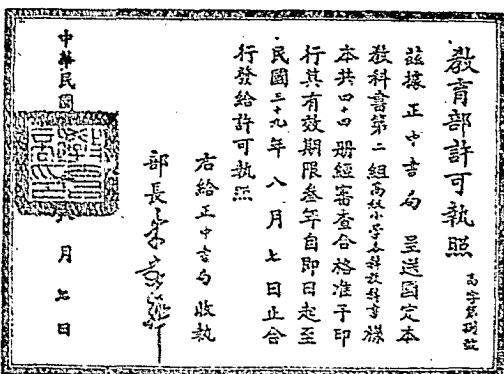 教育部許可執照
高字第 號
茲據正中書局呈送國定本
教科書第二組高級小學各科教科書樣
本共四十四冊經審查合格准予印
行其有效期限叁年自即日起至
民國三十九年八月七日止合
行發給許可執照
右給正中書局收執
部長朱家驊
中華民國
月七日